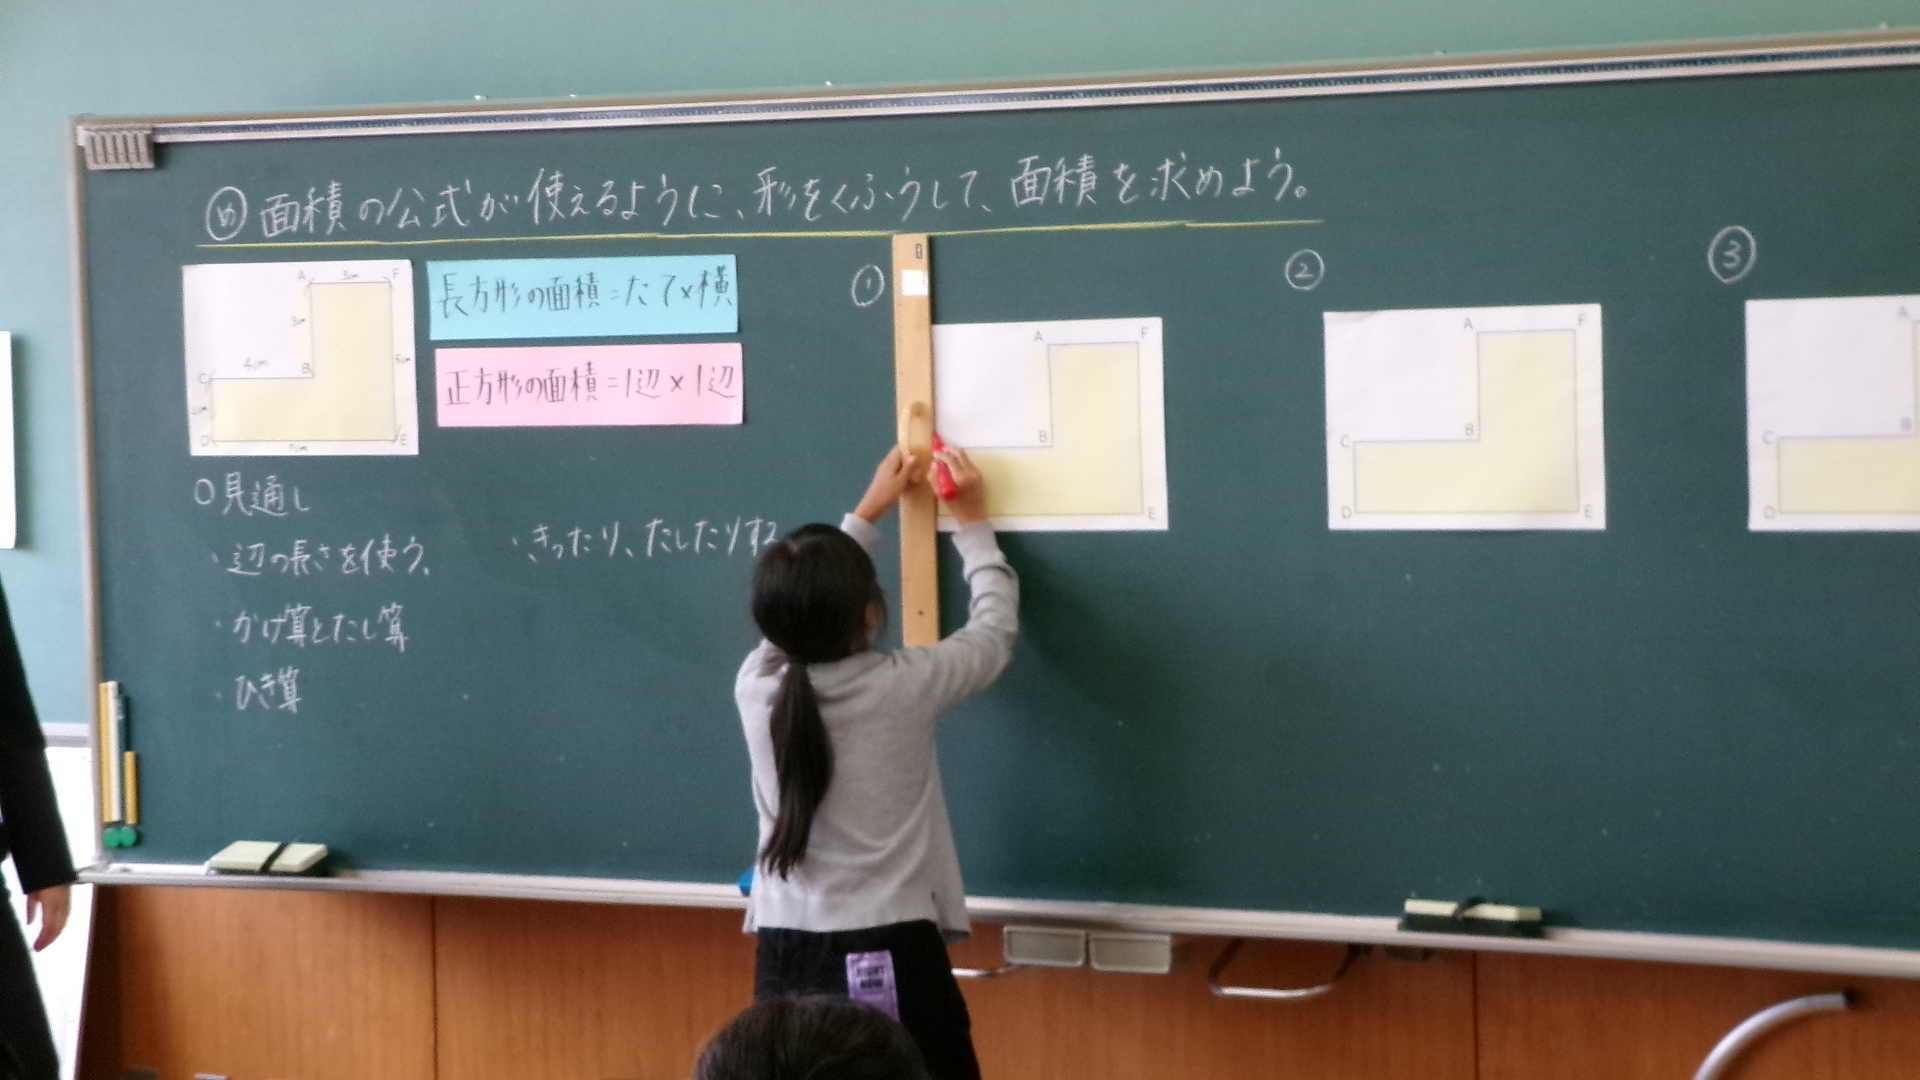 め 面積の公式が使えるように、形をくふうして、面積を求めよう。
A 3cm F
3cm
4cm
C B
5cm
2cm
D 7cm E
長方形の面積=たて×横
正方形の面積=1辺×1辺
○見通し
・辺の長さを使う。
・かけ算とたし算
・ひき算
・きったり、たしたりする
①
A F
B
E
②
A F
C B
D E
③
A
C B
D
RIGHT
NOW